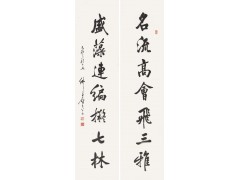 名流高會飛三雅
盛藻連編擬七林